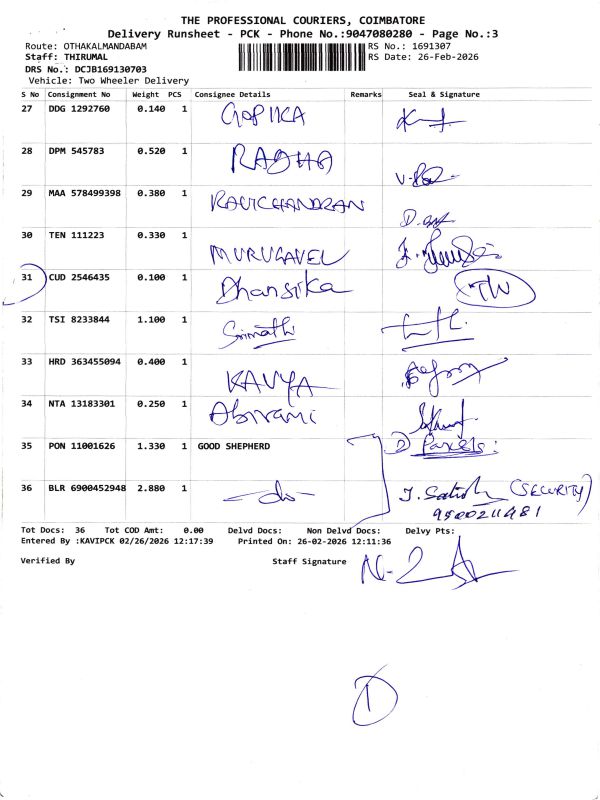 THE PROFESSIONAL COURIERS, COIMBATORE
Delivery Runsheet - PCK - Phone No.:9047080280 - Page No.:3
Route: OTHAKALMANDABAM RS No.: 1691307
Staff: THIRUMAL RS Date: 26-Feb-2026
DRS No.: DCJB169130703
Vehicle: Two Wheeler Delivery
S No Consignment No Weight PCS Consignee Details Remarks Seal & Signature
27 DDG 1292760 0.140 1 GOPIKA
28 DPM 545783 0.520 1 RADHA
29 MAA 578499398 0.380 1 RAVICHANDRAN
30 TEN 111223 0.330 1 MURUGAVEL
31 CUD 2546435 0.100 1 Dhansika TW
32 TSI 8233844 1.100 1 Srimathi
33 HRD 363455094 0.400 1 KAVYA
34 NTA 13183301 0.250 1 Abirami
35 PON 11001626 1.330 1 GOOD SHEPHERD Parcels:
36 BLR 6900452948 2.880 1 -do- J. Satish (SECURITY)
9500211481
Tot Docs: 36 Tot COD Amt: 0.00 Delvd Docs: Non Delvd Docs: Delvy Pts:
Entered By :KAVIPCK 02/26/2026 12:17:39 Printed On: 26-02-2026 12:11:36
Verified By Staff Signature